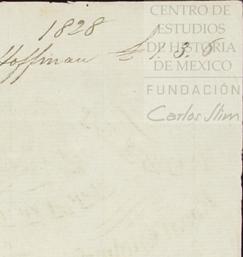 1828
Hoffman £1.3.6
CENTRO DE
ESTUDIOS
DE HISTORIA
DE MEXICO
FUNDACIÓN
Carlos Slim